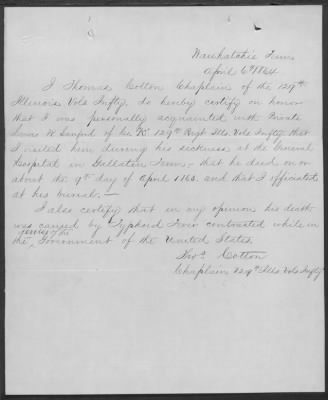 Wauhatchie Tenn
April 6th 1864
I Thomas Cotton Chaplain of the 129th
Illinois Vols Infty, do hereby certify on honor
that I was personally acquainted with Private
W Sanford of Co "K" 129th Regt Ills Vols Infty that
I visited him during his sickness at the General
Hospital in Gallatin Tenn, that he died on or
about the 9th day of April 1863. and that I officiated
at his burial. —
I also certify that in my opinion his death
was caused by Typhoid Fever contracted while in
the service of the Government of the United States.
Thos Cotton
Chaplain 129th Ills Vols Infty